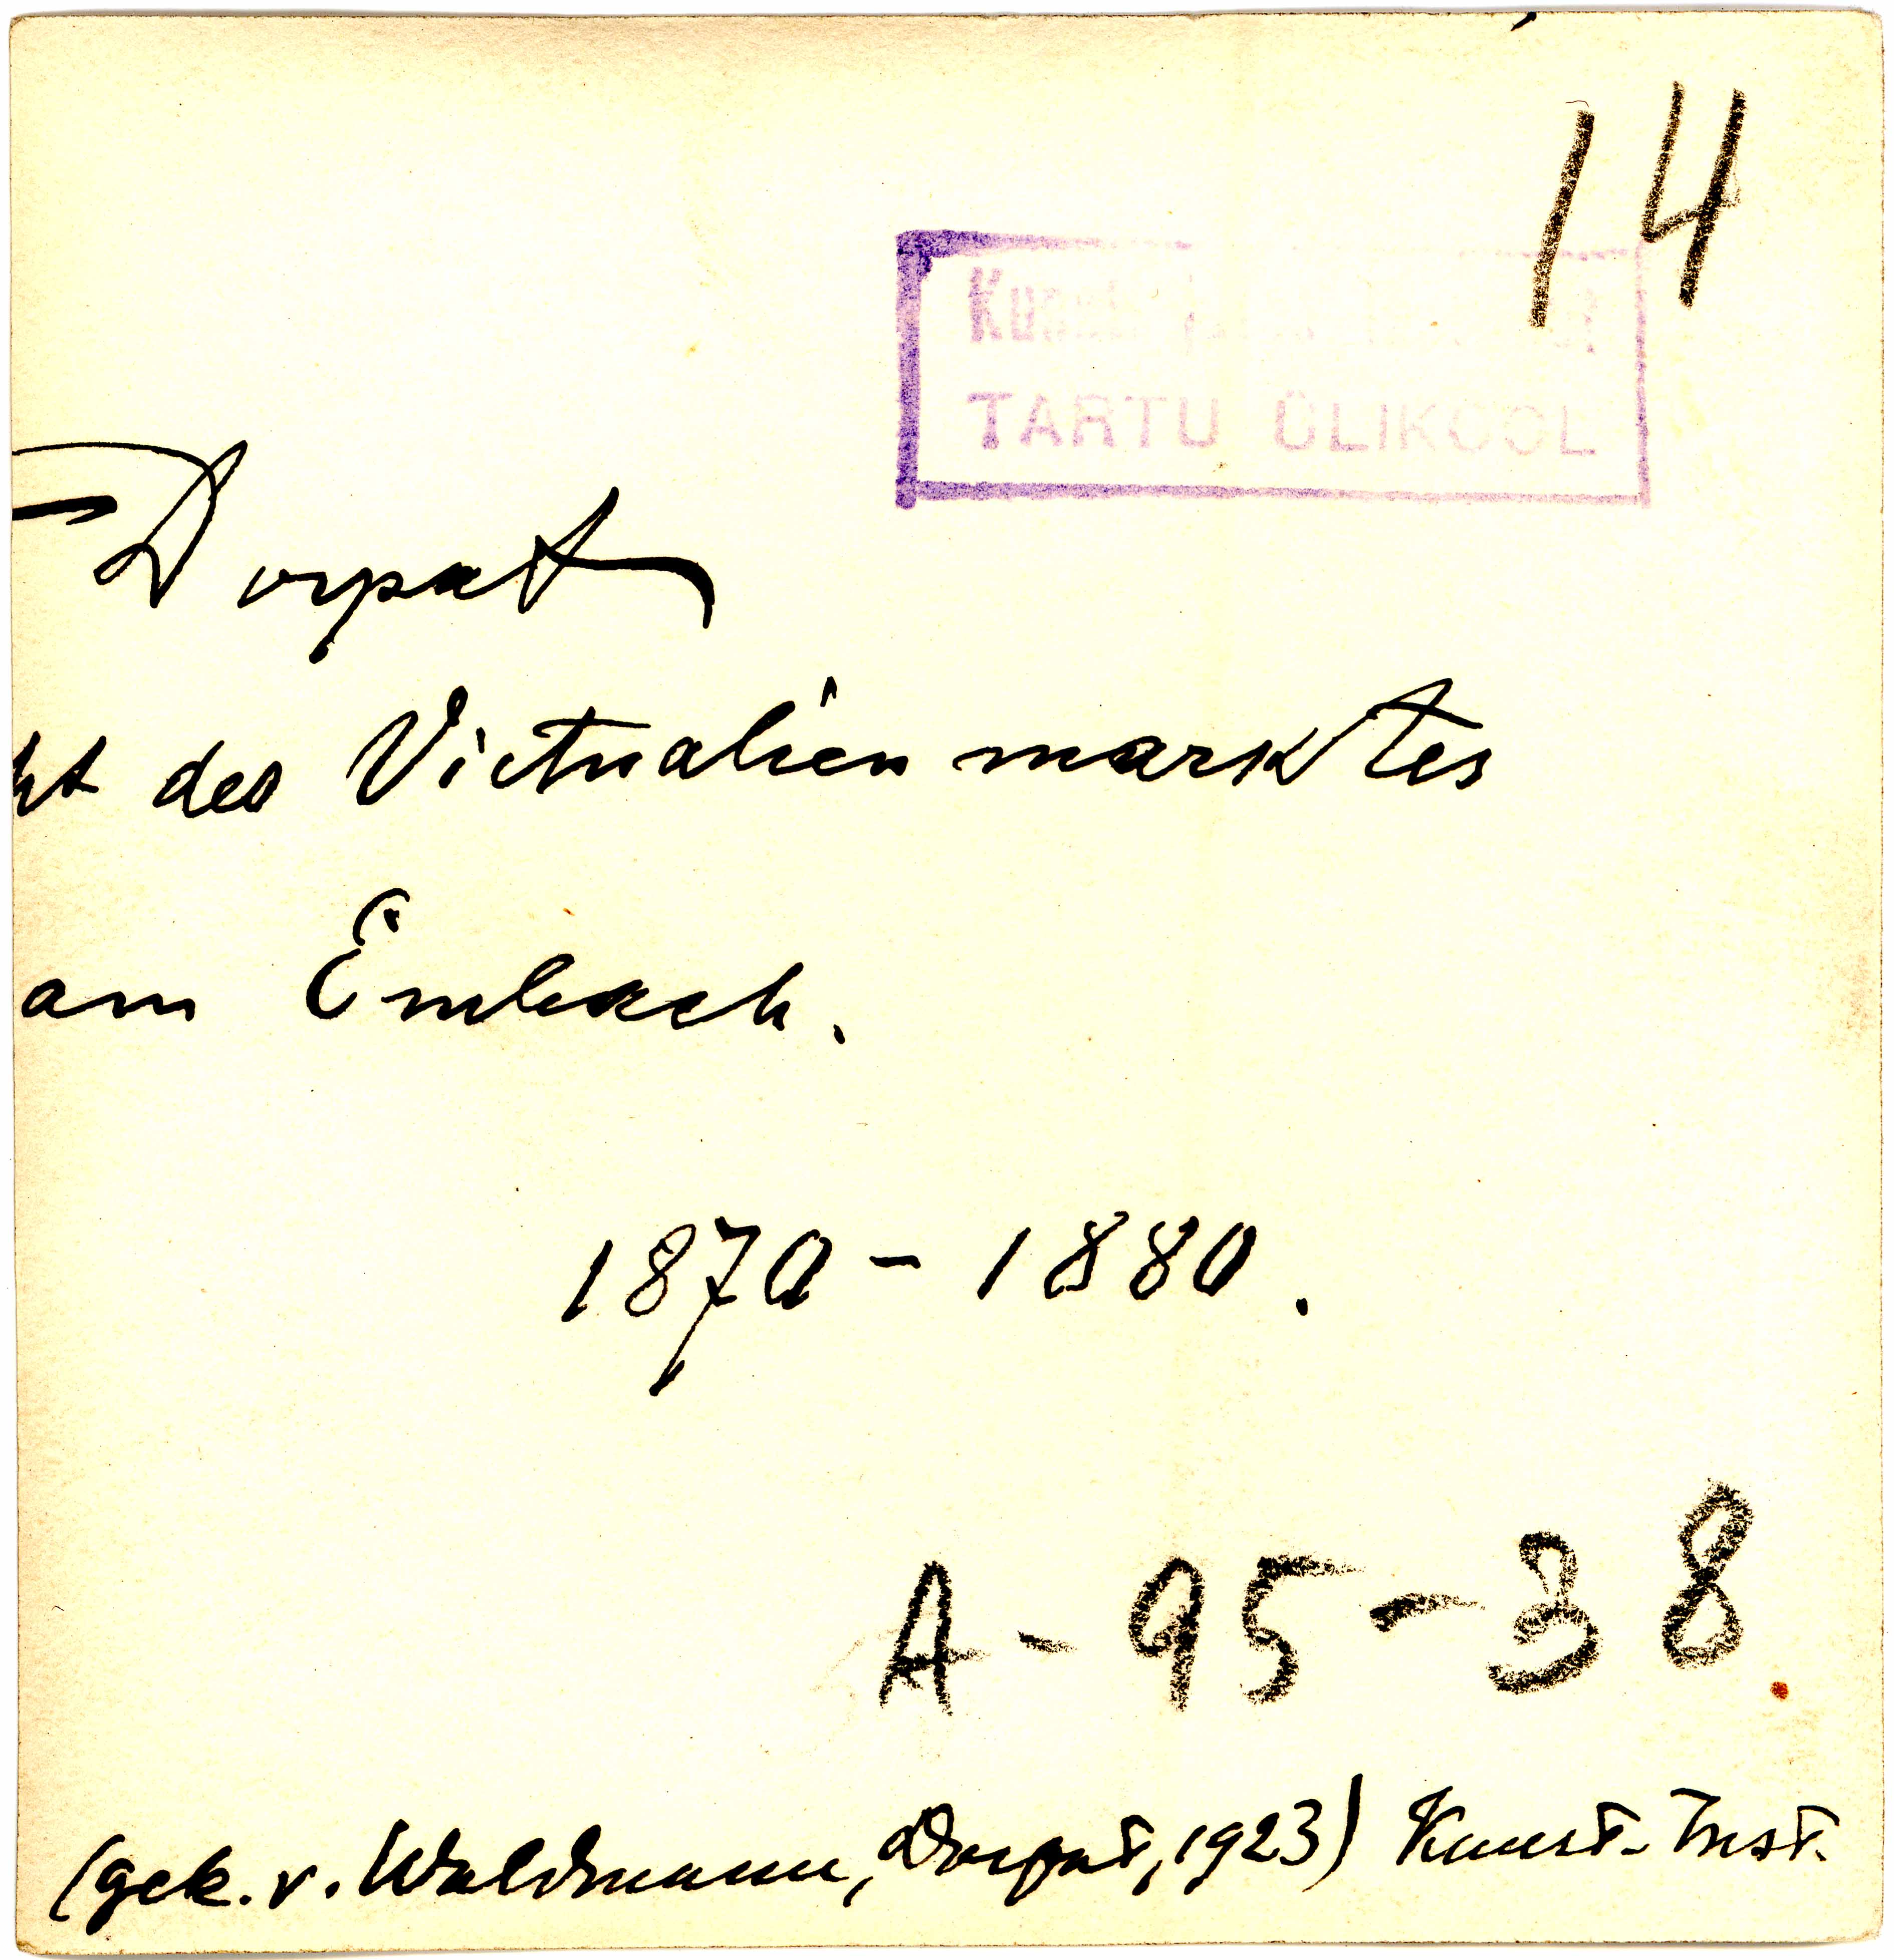 14
TARTU ÜLIKOOL
Dorpat
ht des Victualienmarktes
am Embach.
1870 - 1880.
A - 95 - 38
(gek. v. Waldmann, Dorpat, 1923) Kunst. Inst.